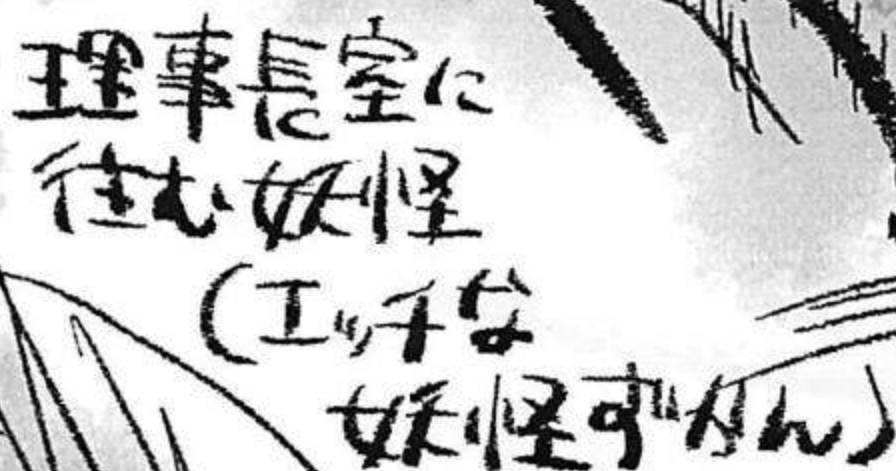 理事長室に
住む妖怪
(エッチな
妖怪ずかん)